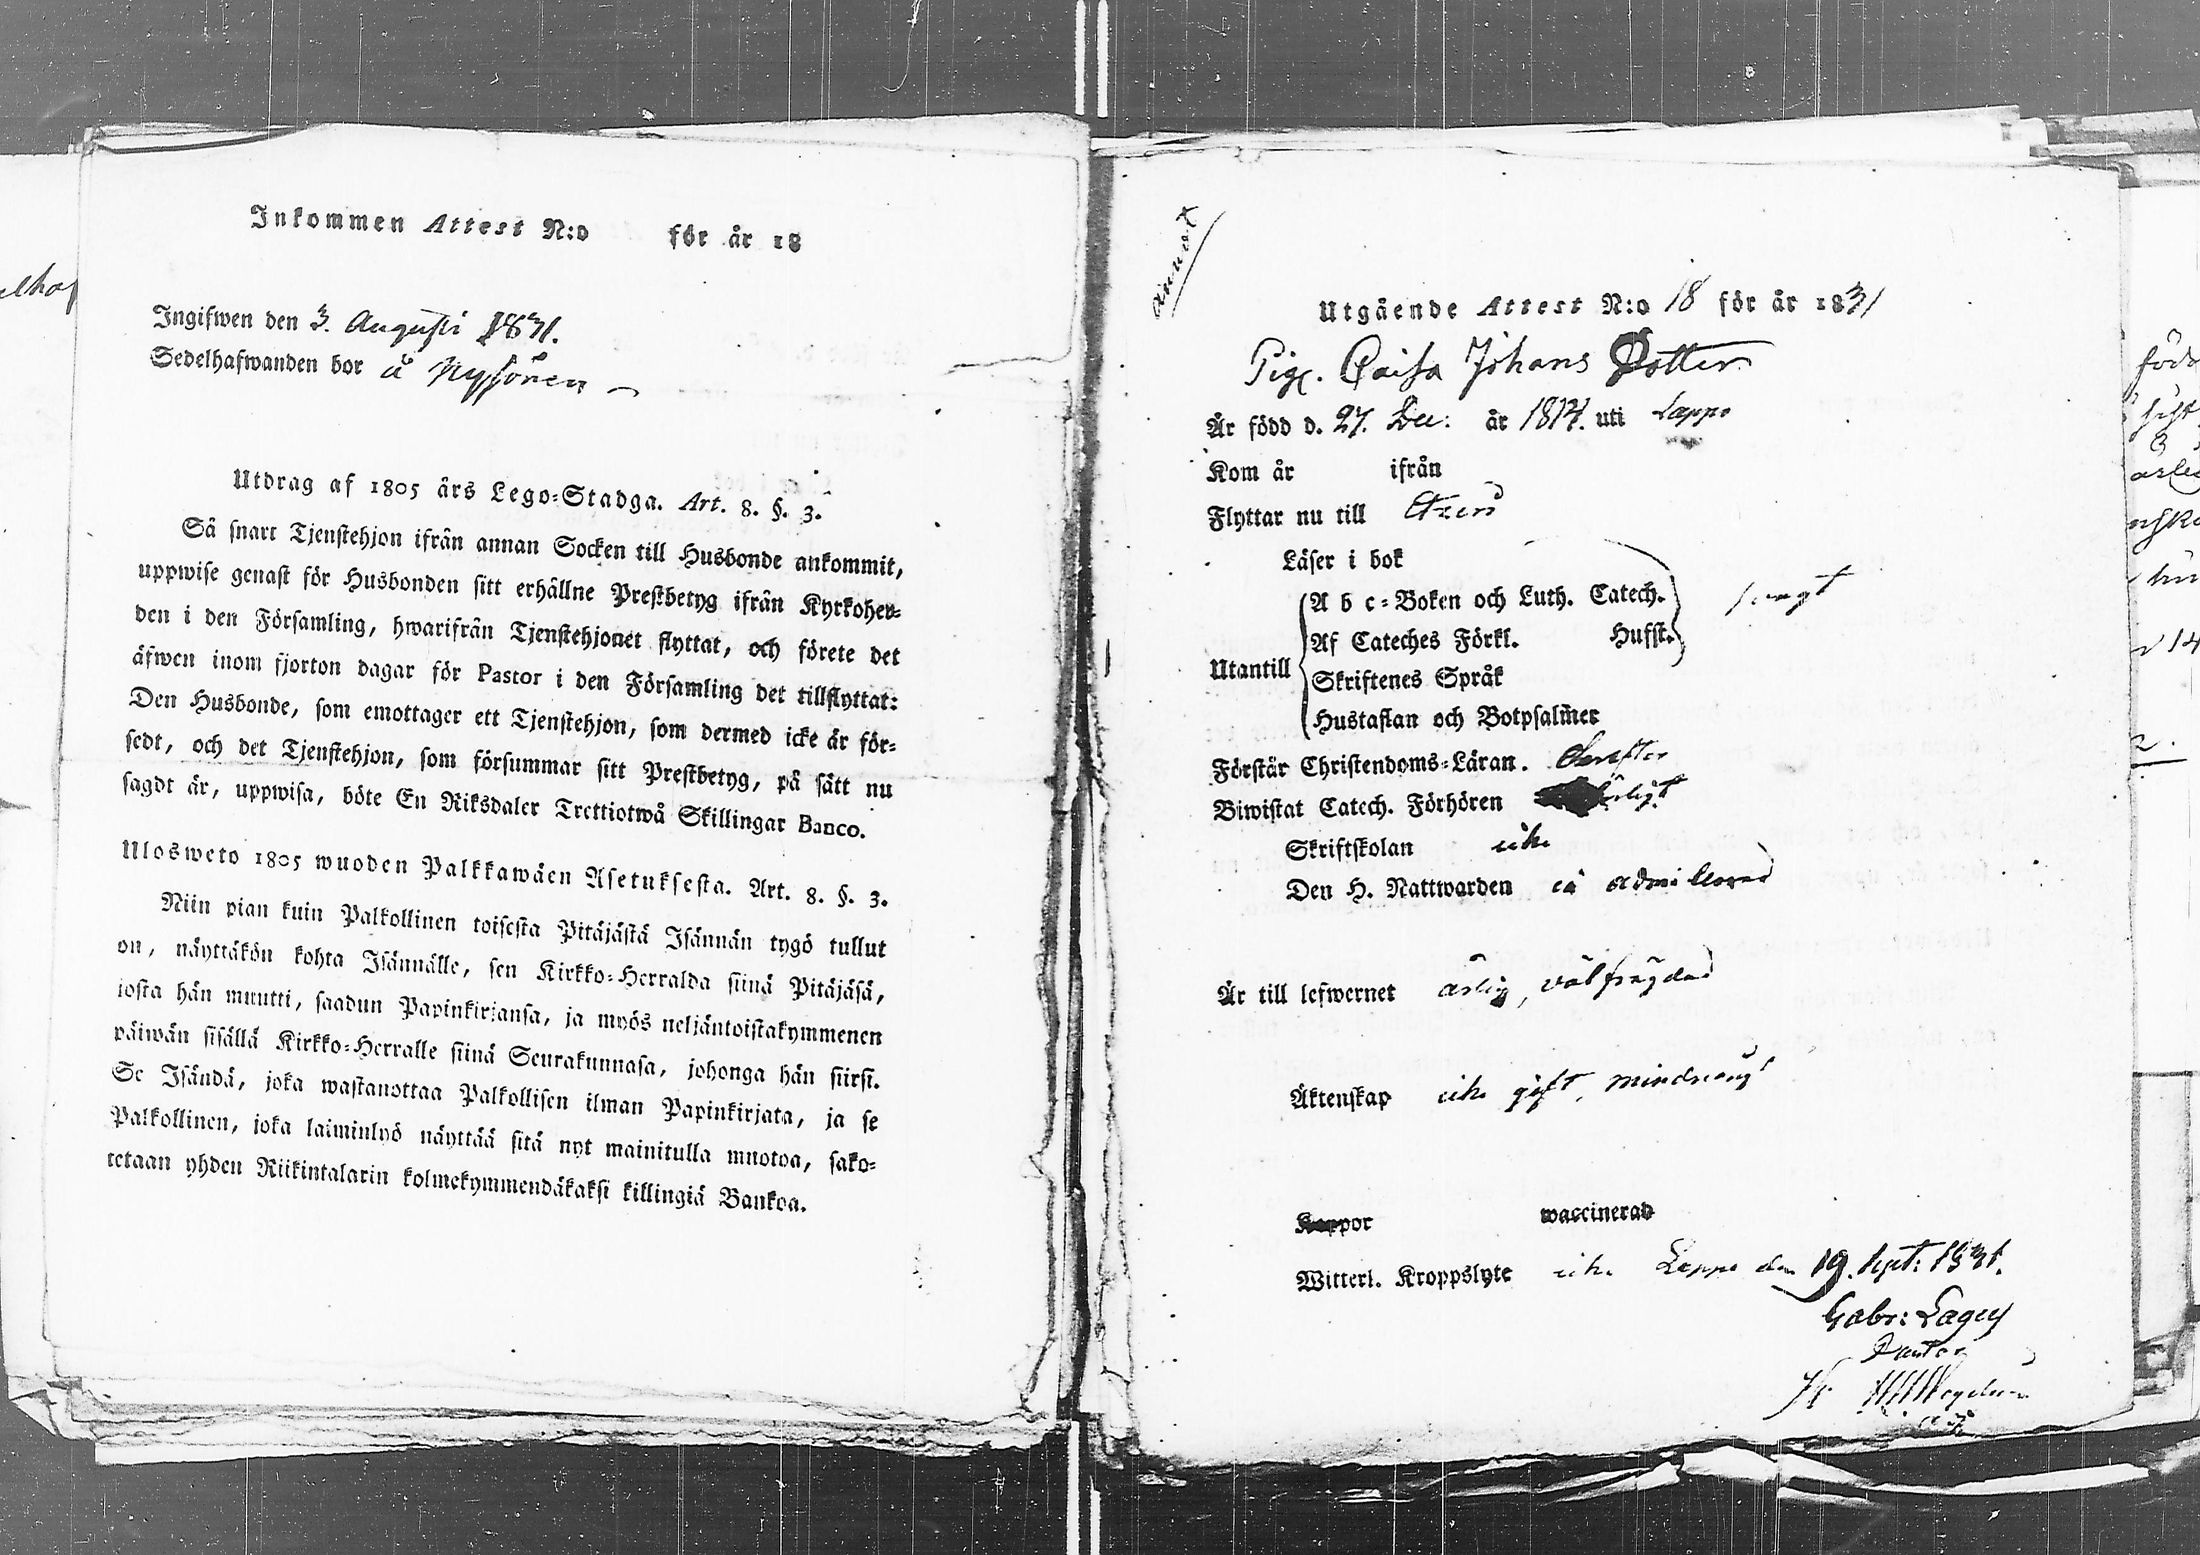 Inkommen Attest N:o för år 18
Ingifwen den 3. Augusti 1831.
Sedelhafwanden bor å Nysören
Utdrag af 1805 års Lego=Stadga. Art. 8. §. 3.
Så snart Tjenstehjon ifrån annan Socken till Husbonde ankommit,
uppwise genast för Husbonden sitt erhållne Prestbetyg ifrån Kyrkoher=
den i den Församling, hwarifrån Tjenstehjonet flyttat, och förete det
äfwen inom fjorton dagar för Pastor i den Församling det tillflyttat:
Den Husbonde, som emottager ett Tjenstehjon, som dermed icke är för=
sedt, och det Tjenstehjon, som försummar sitt Prestbetyg, på sätt nu
sagdt är, uppwisa, böte En Riksdaler Trettiotwå Skillingar Banco.
Ulosweto 1805 wuoden Palkkawäen Asetuksesta. Art. 8. §. 3.
Niin pian kuin Palkollinen toisesta Pitäjästä Isännän tygö tullut
on, näyttäkön kohta Isännälle, sen Kirkko=Herralda siinä Pitäjäsä,
josta hän muutti, saadun Papinkirjansa, ja myös neljäntoistakymmenen
päiwän sisällä Kirkko=Herralle siinä Seurakunnasa, johonga hän siirsi.
Se Isändä, joka wastanottaa Palkollisen ilman Papinkirjata, ja se
Palkollinen, joka laiminlyö näyttää sitä nyt mainitulla muotoa, sako=
tetaan yhden Riikintalarin kolmekymmendäkaksi killingiä Bankoa.
Utgående Attest N:o 18 för år 1831
Pig. Caisa Johans Dotter
Är född d. 27. Dec: år 1814. uti Lappo
Kom år ifrån
Flyttar nu till
Läser i bok
A b c=Boken och Luth. Catech. svagt
Af Cateches Förkl. Husst.
Utantill
Skriftenes Språk
Hustaflan och Botpsalmer
Förstår Christendoms=Läran.
Biwistat Catech. Förhören
Skriftskolan icke
Den H. Nattwarden ei admitterad
Är till lefwernet ärlig, välfrägdad
Äktenskap icke gift, minderårig
Koppor waccinerad
Witterl. Kroppslyte icke Lappo den 19. Sept: 1831.
Gabr: Lagus
Pastor